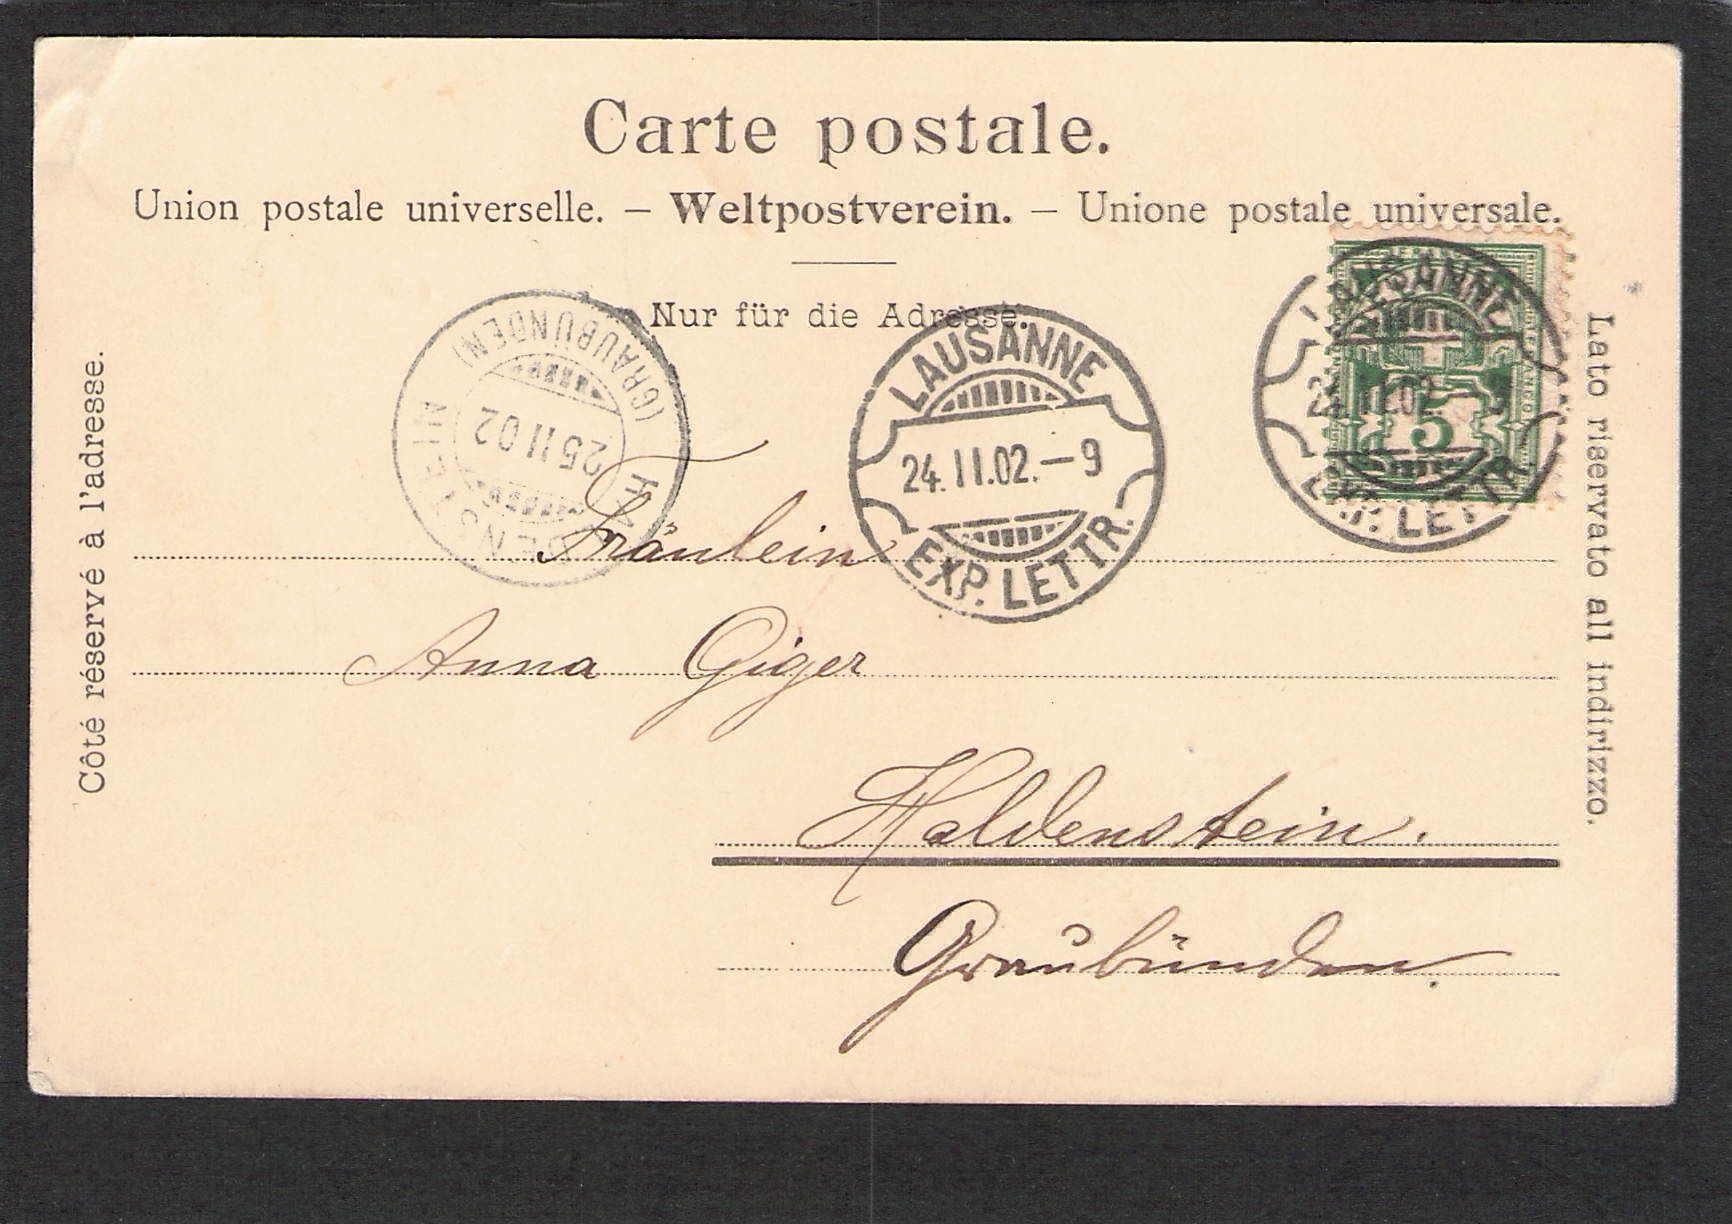 Carte postale.
Union postale universelle. – Weltpostverein. – Unione postale universale.
Nur für die Adresse.
Côté réservé à l'adresse.
Lato riservato all indirizzo.
HALDENSTEIN
(GRAUBÜNDEN)
25 II 02
LAUSANNE
24. II. 02. – 9
EXP. LETTR.
LAUSANNE
24. II. 02.
EXP. LETTR.
5
Fräulein
Anna Giger
Haldenstein.
Graubünden.